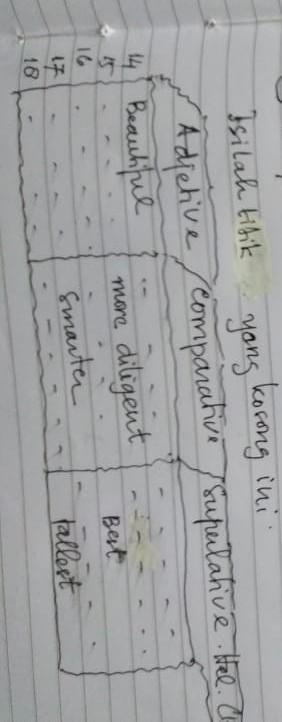 Isilah titik .. yang kosong ini.
Adjetive Comparative Superlative. Hal.
14 Beautiful - - - - - - - -
15 - - - - more diligent - - - -
16 - - - - - - - - Best
17 - - - - smarter - - - -
18 - - - - - - - - tallest